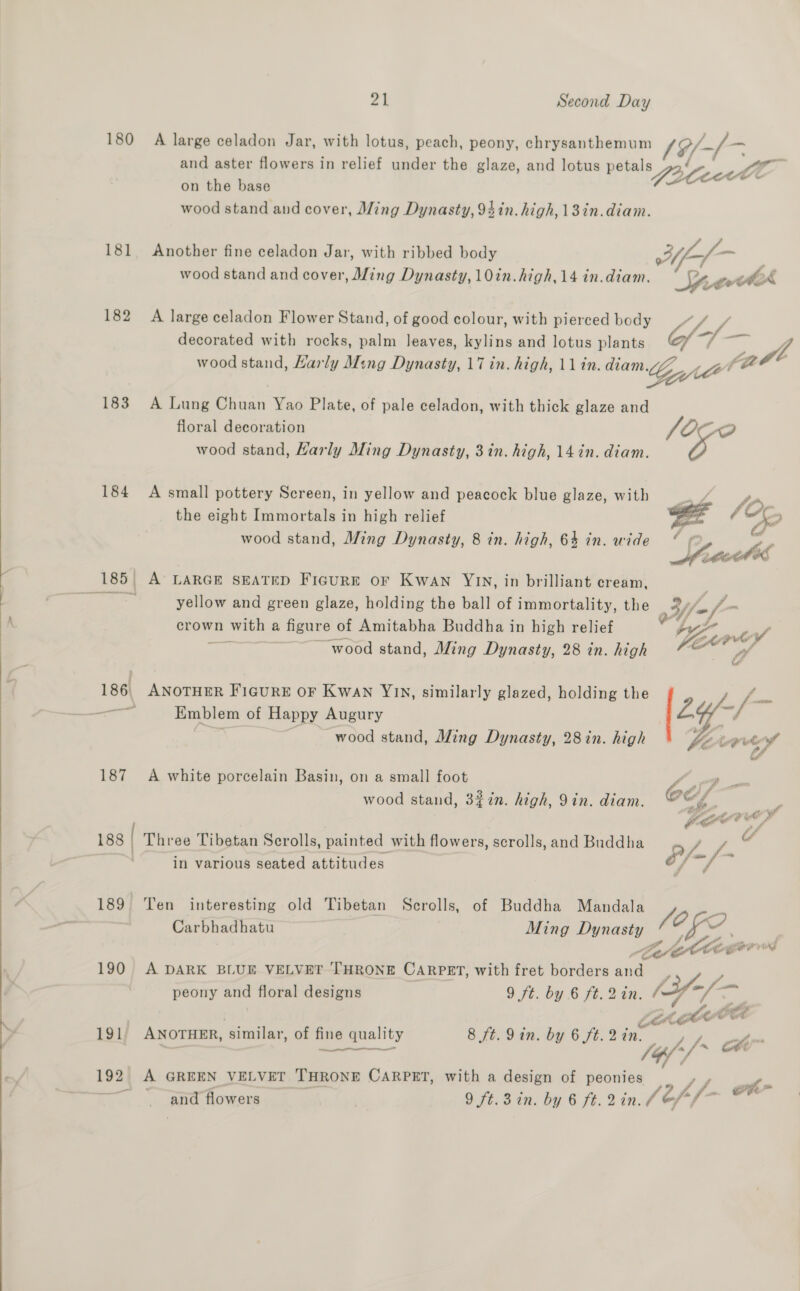 21 Second Day
180 A large celadon Jar, with lotus, peach, peony, chrysanthemum
and aster flowers in relief under the glaze, and lotus petals
on the base
wood stand and cover, Ming Dynasty, 9½in. high, 13in. diam.
181 Another fine celadon Jar, with ribbed body
wood stand and cover, Ming Dynasty, 10in. high, 14 in. diam.
182 A large celadon Flower Stand, of good colour, with pierced body
decorated with rocks, palm leaves, kylins and lotus plants
wood stand, Early Ming Dynasty, 17 in. high, 11 in. diam.
183 A Lung Chuan Yao Plate, of pale celadon, with thick glaze and
floral decoration
wood stand, Early Ming Dynasty, 3 in. high, 14 in. diam.
184 A small pottery Screen, in yellow and peacock blue glaze, with
the eight Immortals in high relief
wood stand, Ming Dynasty, 8 in. high, 6½ in. wide
185 A LARGE SEATED FIGURE OF KWAN YIN, in brilliant cream,
yellow and green glaze, holding the ball of immortality, the
crown with a figure of Amitabha Buddha in high relief
wood stand, Ming Dynasty, 28 in. high
186 ANOTHER FIGURE OF KWAN YIN, similarly glazed, holding the
Emblem of Happy Augury
wood stand, Ming Dynasty, 28in. high
187 A white porcelain Basin, on a small foot
wood stand, 3¾in. high, 9in. diam.
188 Three Tibetan Scrolls, painted with flowers, scrolls, and Buddha
in various seated attitudes
189 Ten interesting old Tibetan Scrolls, of Buddha Mandala
Carbhadhatu Ming Dynasty
190 A DARK BLUE VELVET THRONE CARPET, with fret borders and
peony and floral designs 9 ft. by 6 ft. 2 in.
191 ANOTHER, similar, of fine quality 8 ft. 9 in. by 6 ft. 2 in.
192 A GREEN VELVET THRONE CARPET, with a design of peonies
and flowers 9 ft. 3 in. by 6 ft. 2 in.